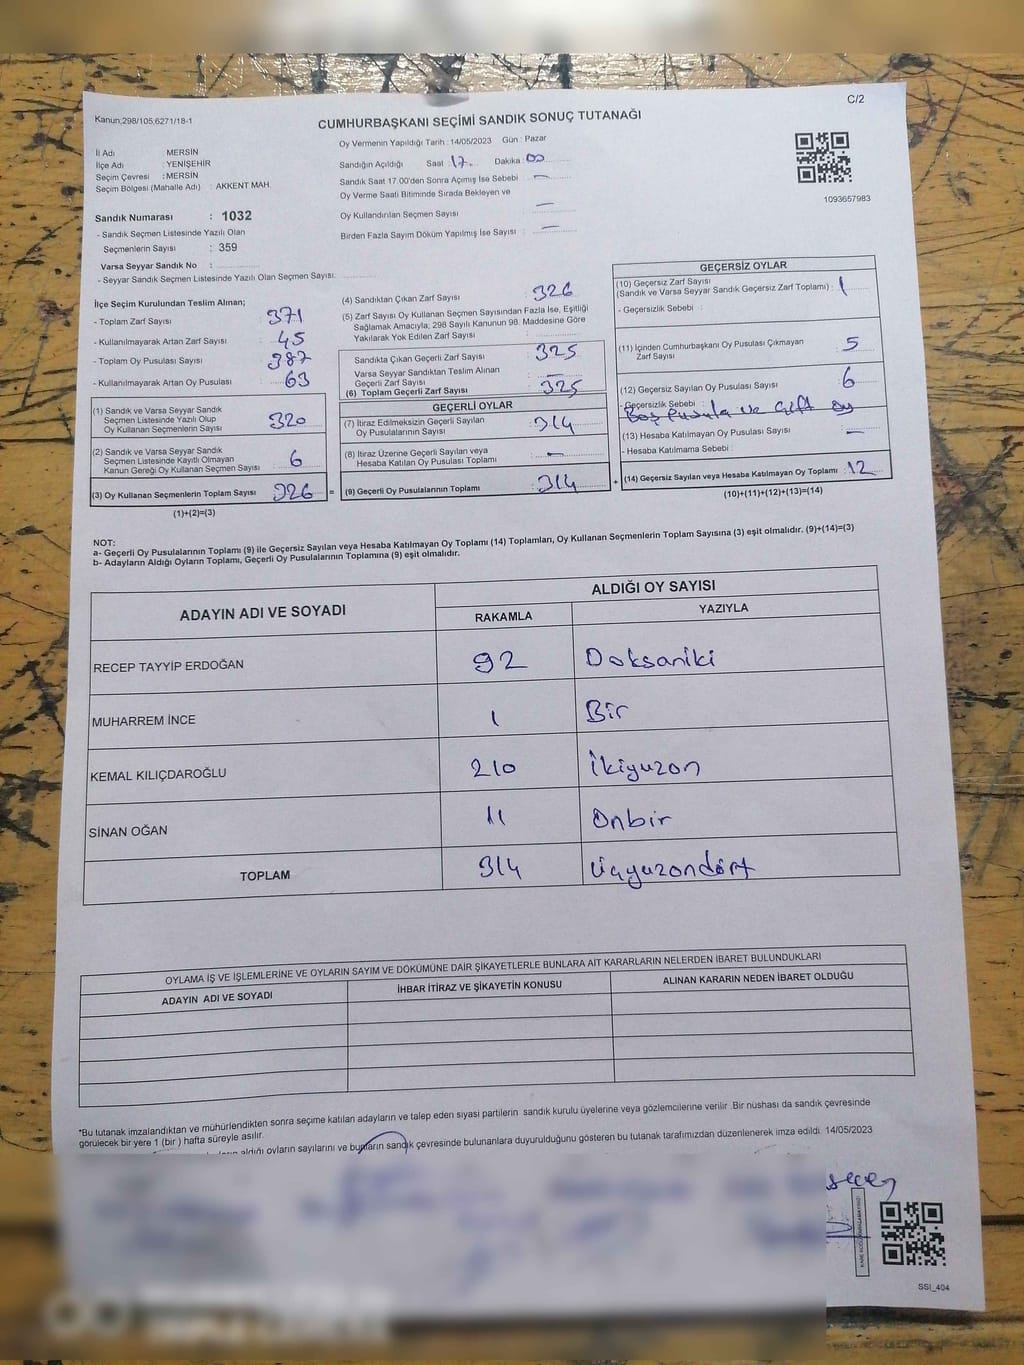 C/2
Kanun;298/105,6271/18-1
CUMHURBAŞKANI SEÇİMİ SANDIK SONUÇ TUTANAĞI
İl Adı : MERSİN
İlçe Adı : YENİŞEHİR
Seçim Çevresi : MERSİN
Seçim Bölgesi (Mahalle Adı) : AKKENT MAH
Sandık Numarası : 1032
- Sandık Seçmen Listesinde Yazılı Olan
Seçmenlerin Sayısı : 359
Varsa Seyyar Sandık No :
- Seyyar Sandık Seçmen Listesinde Yazılı Olan Seçmen Sayısı:
Oy Vermenin Yapıldığı Tarih : 14/05/2023 Gün : Pazar
Sandığın Açıldığı Saat 17. Dakika : 00
Sandık Saat 17.00'den Sonra Açımış İse Sebebi : —
Oy Verme Saati Bitiminde Sırada Bekleyen ve
Oy Kullandırılan Seçmen Sayısı : —
Birden Fazla Sayım Döküm Yapılmış İse Sayısı : —
1093657983
İlçe Seçim Kurulundan Teslim Alınan;
- Toplam Zarf Sayısı : 371
- Kullanılmayarak Artan Zarf Sayısı : 45
- Toplam Oy Pusulası Sayısı : 387
- Kullanılmayarak Artan Oy Pusulası : 63
(1) Sandık ve Varsa Seyyar Sandık
Seçmen Listesinde Yazılı Olup
Oy Kullanan Seçmenlerin Sayısı : 320
(2) Sandık ve Varsa Seyyar Sandık
Seçmen Listesinde Kayıtlı Olmayan
Kanun Gereği Oy Kullanan Seçmen Sayısı : 6
(3) Oy Kullanan Seçmenlerin Toplam Sayısı 326 =
(1)+(2)=(3)
(4) Sandıktan Çıkan Zarf Sayısı : 326
(5) Zarf Sayısı Oy Kullanan Seçmen Sayısından Fazla İse, Eşitliği
Sağlamak Amacıyla; 298 Sayılı Kanunun 98. Maddesine Göre
Yakılarak Yok Edilen Zarf Sayısı :
Sandıkta Çıkan Geçerli Zarf Sayısı : 325
Varsa Seyyar Sandıktan Teslim Alınan
Geçerli Zarf Sayısı : —
(6) Toplam Geçerli Zarf Sayısı : 325
GEÇERLİ OYLAR
(7) İtiraz Edilmeksizin Geçerli Sayılan
Oy Pusulalarının Sayısı : 314
(8) İtiraz Üzerine Geçerli Sayılan veya
Hesaba Katılan Oy Pusulaları Toplamı : —
(9) Geçerli Oy Pusulalarının Toplamı : 314 +
GEÇERSİZ OYLAR
(10) Geçersiz Zarf Sayısı
(Sandık ve Varsa Seyyar Sandık Geçersiz Zarf Toplamı) : 1
- Geçersizlik Sebebi :
(11) İçinden Cumhurbaşkanı Oy Pusulası Çıkmayan
Zarf Sayısı : 5
(12) Geçersiz Sayılan Oy Pusulası Sayısı : 6
- Geçersizlik Sebebi : Boş pusula ve çift oy
(13) Hesaba Katılmayan Oy Pusulası Sayısı : —
- Hesaba Katılmama Sebebi :
(14) Geçersiz Sayılan veya Hesaba Katılmayan Oy Toplamı : 12
(10)+(11)+(12)+(13)=(14)
NOT:
a- Geçerli Oy Pusulalarının Toplamı (9) ile Geçersiz Sayılan veya Hesaba Katılmayan Oy Toplamı (14) Toplamları, Oy Kullanan Seçmenlerin Toplam Sayısına (3) eşit olmalıdır. (9)+(14)=(3)
b- Adayların Aldığı Oyların Toplamı, Geçerli Oy Pusulalarının Toplamına (9) eşit olmalıdır.
ADAYIN ADI VE SOYADI ALDIĞI OY SAYISI
RAKAMLA YAZIYLA
RECEP TAYYİP ERDOĞAN 92 Doksaniki
MUHARREM İNCE 1 Bir
KEMAL KILIÇDAROĞLU 210 İkiyuzon
SİNAN OĞAN 11 Onbir
TOPLAM 314 Üçyuzondört
OYLAMA İŞ VE İŞLEMLERİNE VE OYLARIN SAYIM VE DÖKÜMÜNE DAİR ŞİKAYETLERLE BUNLARA AİT KARARLARIN NELERDEN İBARET BULUNDUKLARI
ADAYIN ADI VE SOYADI İHBAR İTİRAZ VE ŞİKAYETİN KONUSU ALINAN KARARIN NEDEN İBARET OLDUĞU
*Bu tutanak imzalandıktan ve mühürlendikten sonra seçime katılan adayların ve talep eden siyasi partilerin sandık kurulu üyelerine veya gözlemcilerine verilir .Bir nüshası da sandık çevresinde
görülecek bir yere 1 (bir ) hafta süreyle asılır.
aldığı oyların sayılarını ve bunların sandık çevresinde bulunanlara duyurulduğunu gösteren bu tutanak tarafımızdan düzenlenerek imza edildi. 14/05/2023
SSİ_404